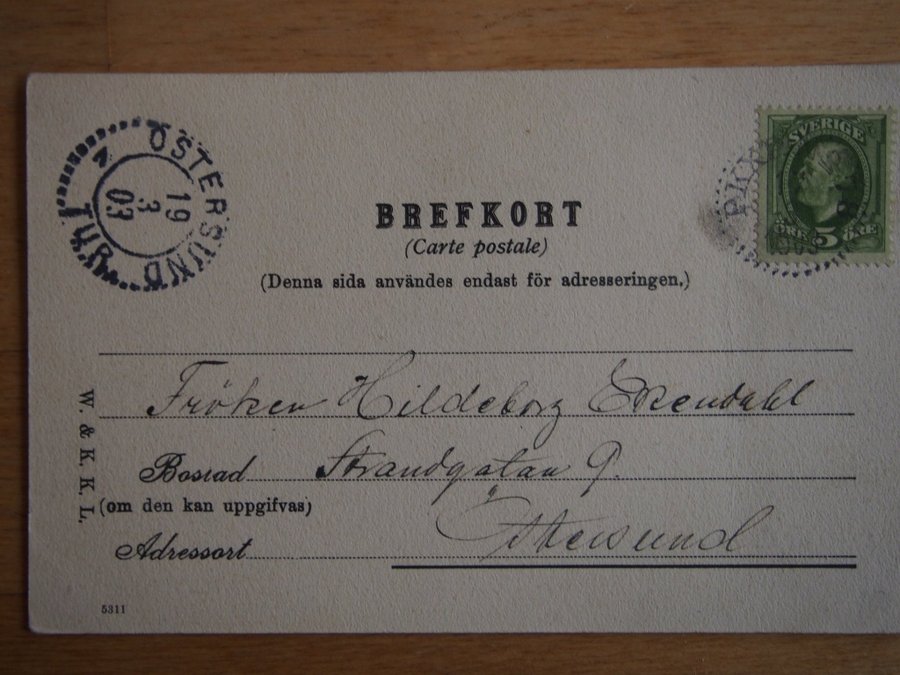 ÖSTERSUND
19
3
03
TUR
SVERIGE
ÖRE 5 ÖRE
BREFKORT
(Carte postale)
(Denna sida användes endast för adresseringen.)
Fröken Hildeborg Ekendahl
Bostad Strandgatan 9.
(om den kan uppgifvas)
Östersund
Adressort
W. & K. K. L.
5311